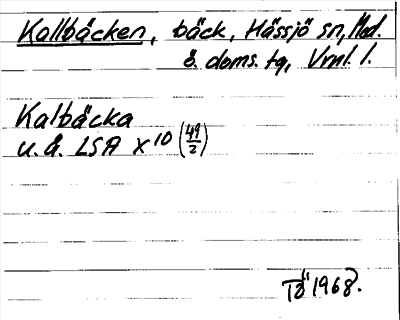 Kallbäcken, bäck, Hässjö sn, Med.
ö. doms. tg, Vrnl. l.
Kalbäcka
u. å. LSA X 10 (49/2)
TB 1968.